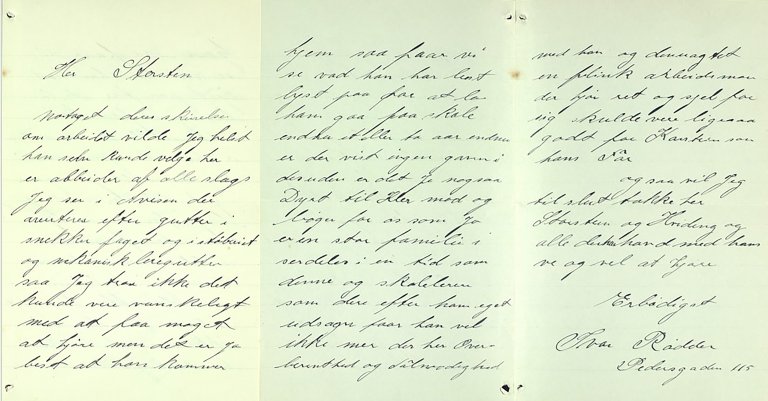 Her Storsten
Motaget deres skrivelse
om arbeidet vilde Jeg helst
han selv kunde velge her
er abbeider af alle slags
Jeg ser i Avisen der
averteres efter gutter i
snekker faget og i støberiet
og mekanisk læregutter
saa Jeg tror ikke det
kunde vere vanskeligt
med at faa noget
at gjøre men det er jo
best at han kommer
hjem saa faar vi
se vad han har lært
lyst paa for at la
ham gaa paa skole
endku et eller to aar endnu
er der vist ingen gavn i
desuden er det jo nogsaa
Dyrt til Kler mod og
bøger for os som jo
er en stor familie i
serdeles i en tid som
denne og skoleleren
som dere efter ham eget
udsagn faar han vel
ikke mer der her Over-
berenthed og
med han og
en flink arbeidsman
der gjør ret og sjel for
sig skulde vere ligesaa
godt for Karsten som
hans Far
og saa vil Jeg
til slut takke her
Storsten og og
alle der havd med ham
ve og vel at gjøre
Erbødigst
Ivar Rødder
Pedersgaden 115